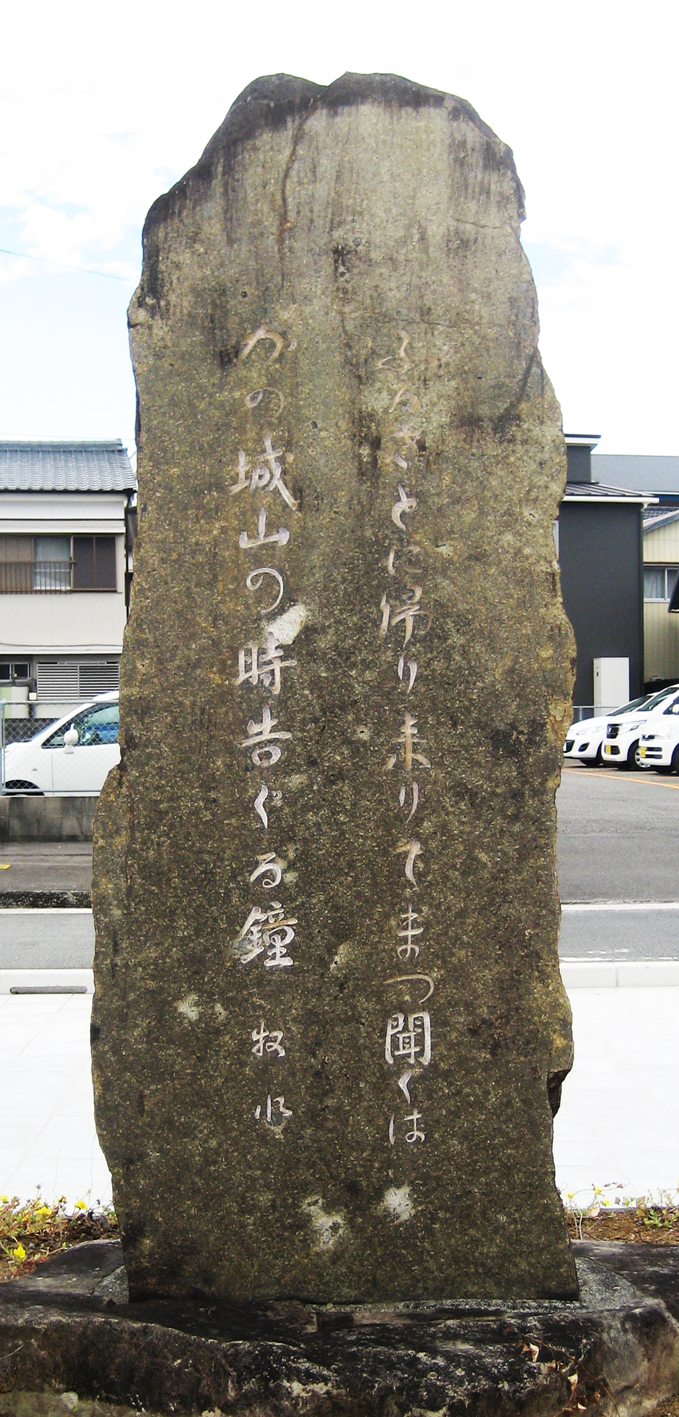 ふるさとに帰り来りてまつ聞くは
かの城山の時告くる鐘 牧水